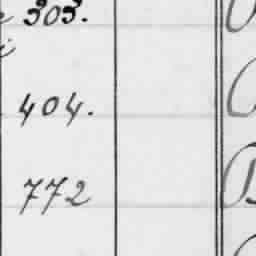 303.
404.
772